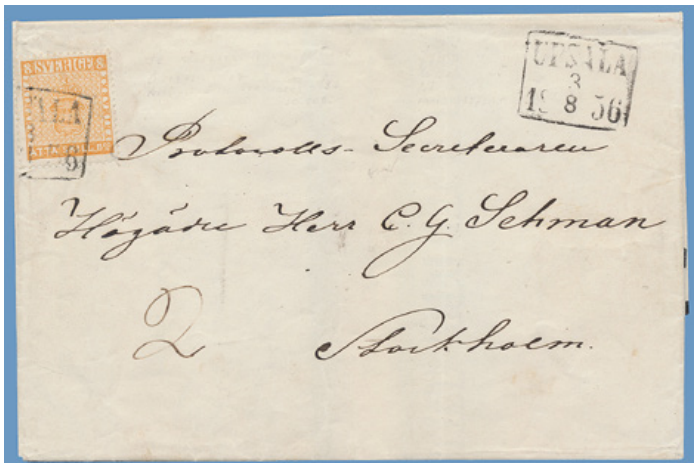 8 SVERIGE 8
UPSALA
3
8
1856
Protocolls-Secreteraren
Högädle Herr C. G. Sehman
2
Stockholm.